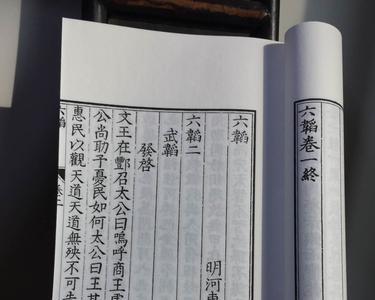 六韜卷一終
六韜
明河東
六韜二
武韜
發啓
文王在酆召太公曰嗚呼商王
公尚助予憂民如何太公曰王其
惠民以觀天道天道無殃不可
六韜
卷二